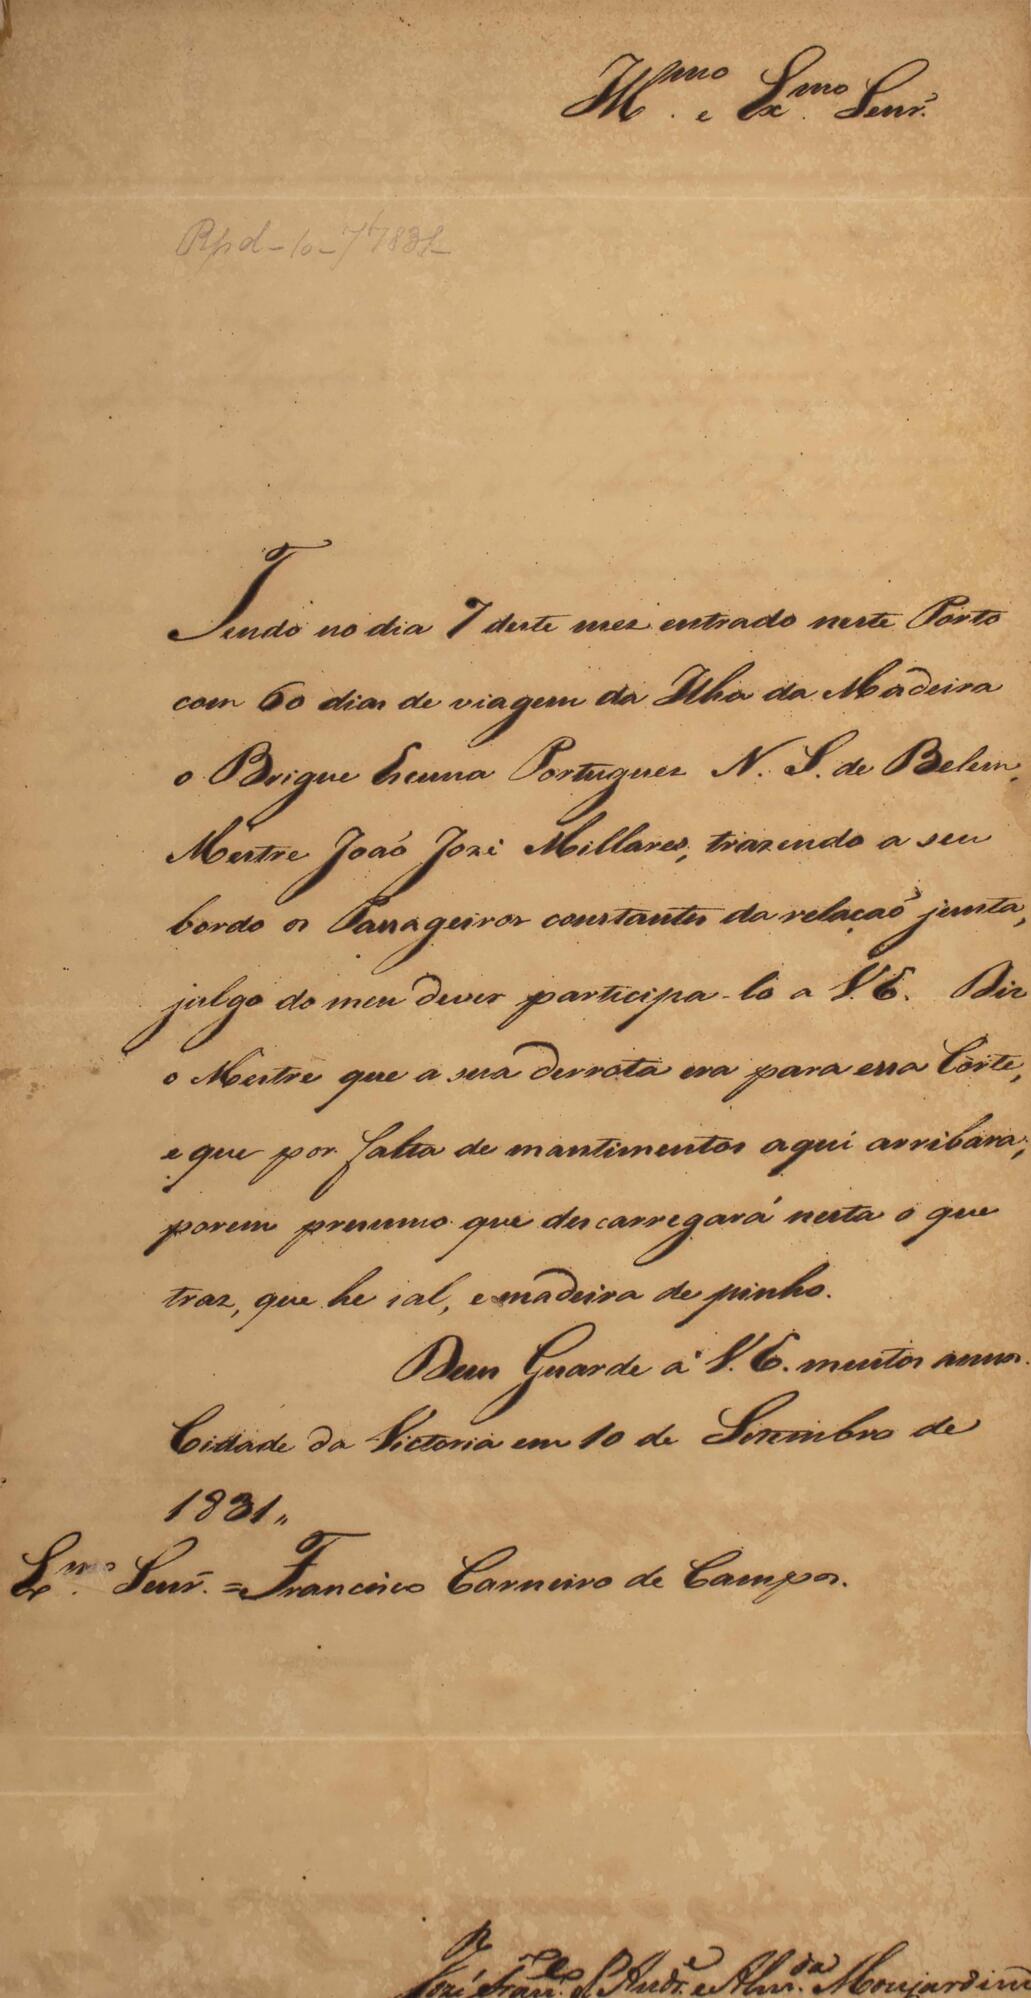 Illmo. e Exmo. Senr.
Tendo no dia 7 deste mez entrado neste Porto
com 60 dias de viagem da Ilha da Madeira
o Brigue Escuna Portuguez N. S. de Belem,
Mestre João Jozé Millares, trazendo a seu
bordo os Passageiros constantes da relação junta,
julgo do meu dever participa-lo a V. E. Diz
o Mestre que a sua derrota era para essa Corte,
e que por falta de mantimentos aqui arribára;
porem presumo que descarregará nesta o que
traz, que he sal, e madeira de pinho.
Deos Guarde a V. E. muitos annos.
Cidade da Victoria em 10 de Setembro de
1831,,
Exmo. Senr. = Francisco Carneiro de Campos.
José Franco. d'Andre. e Almda. Monjardim